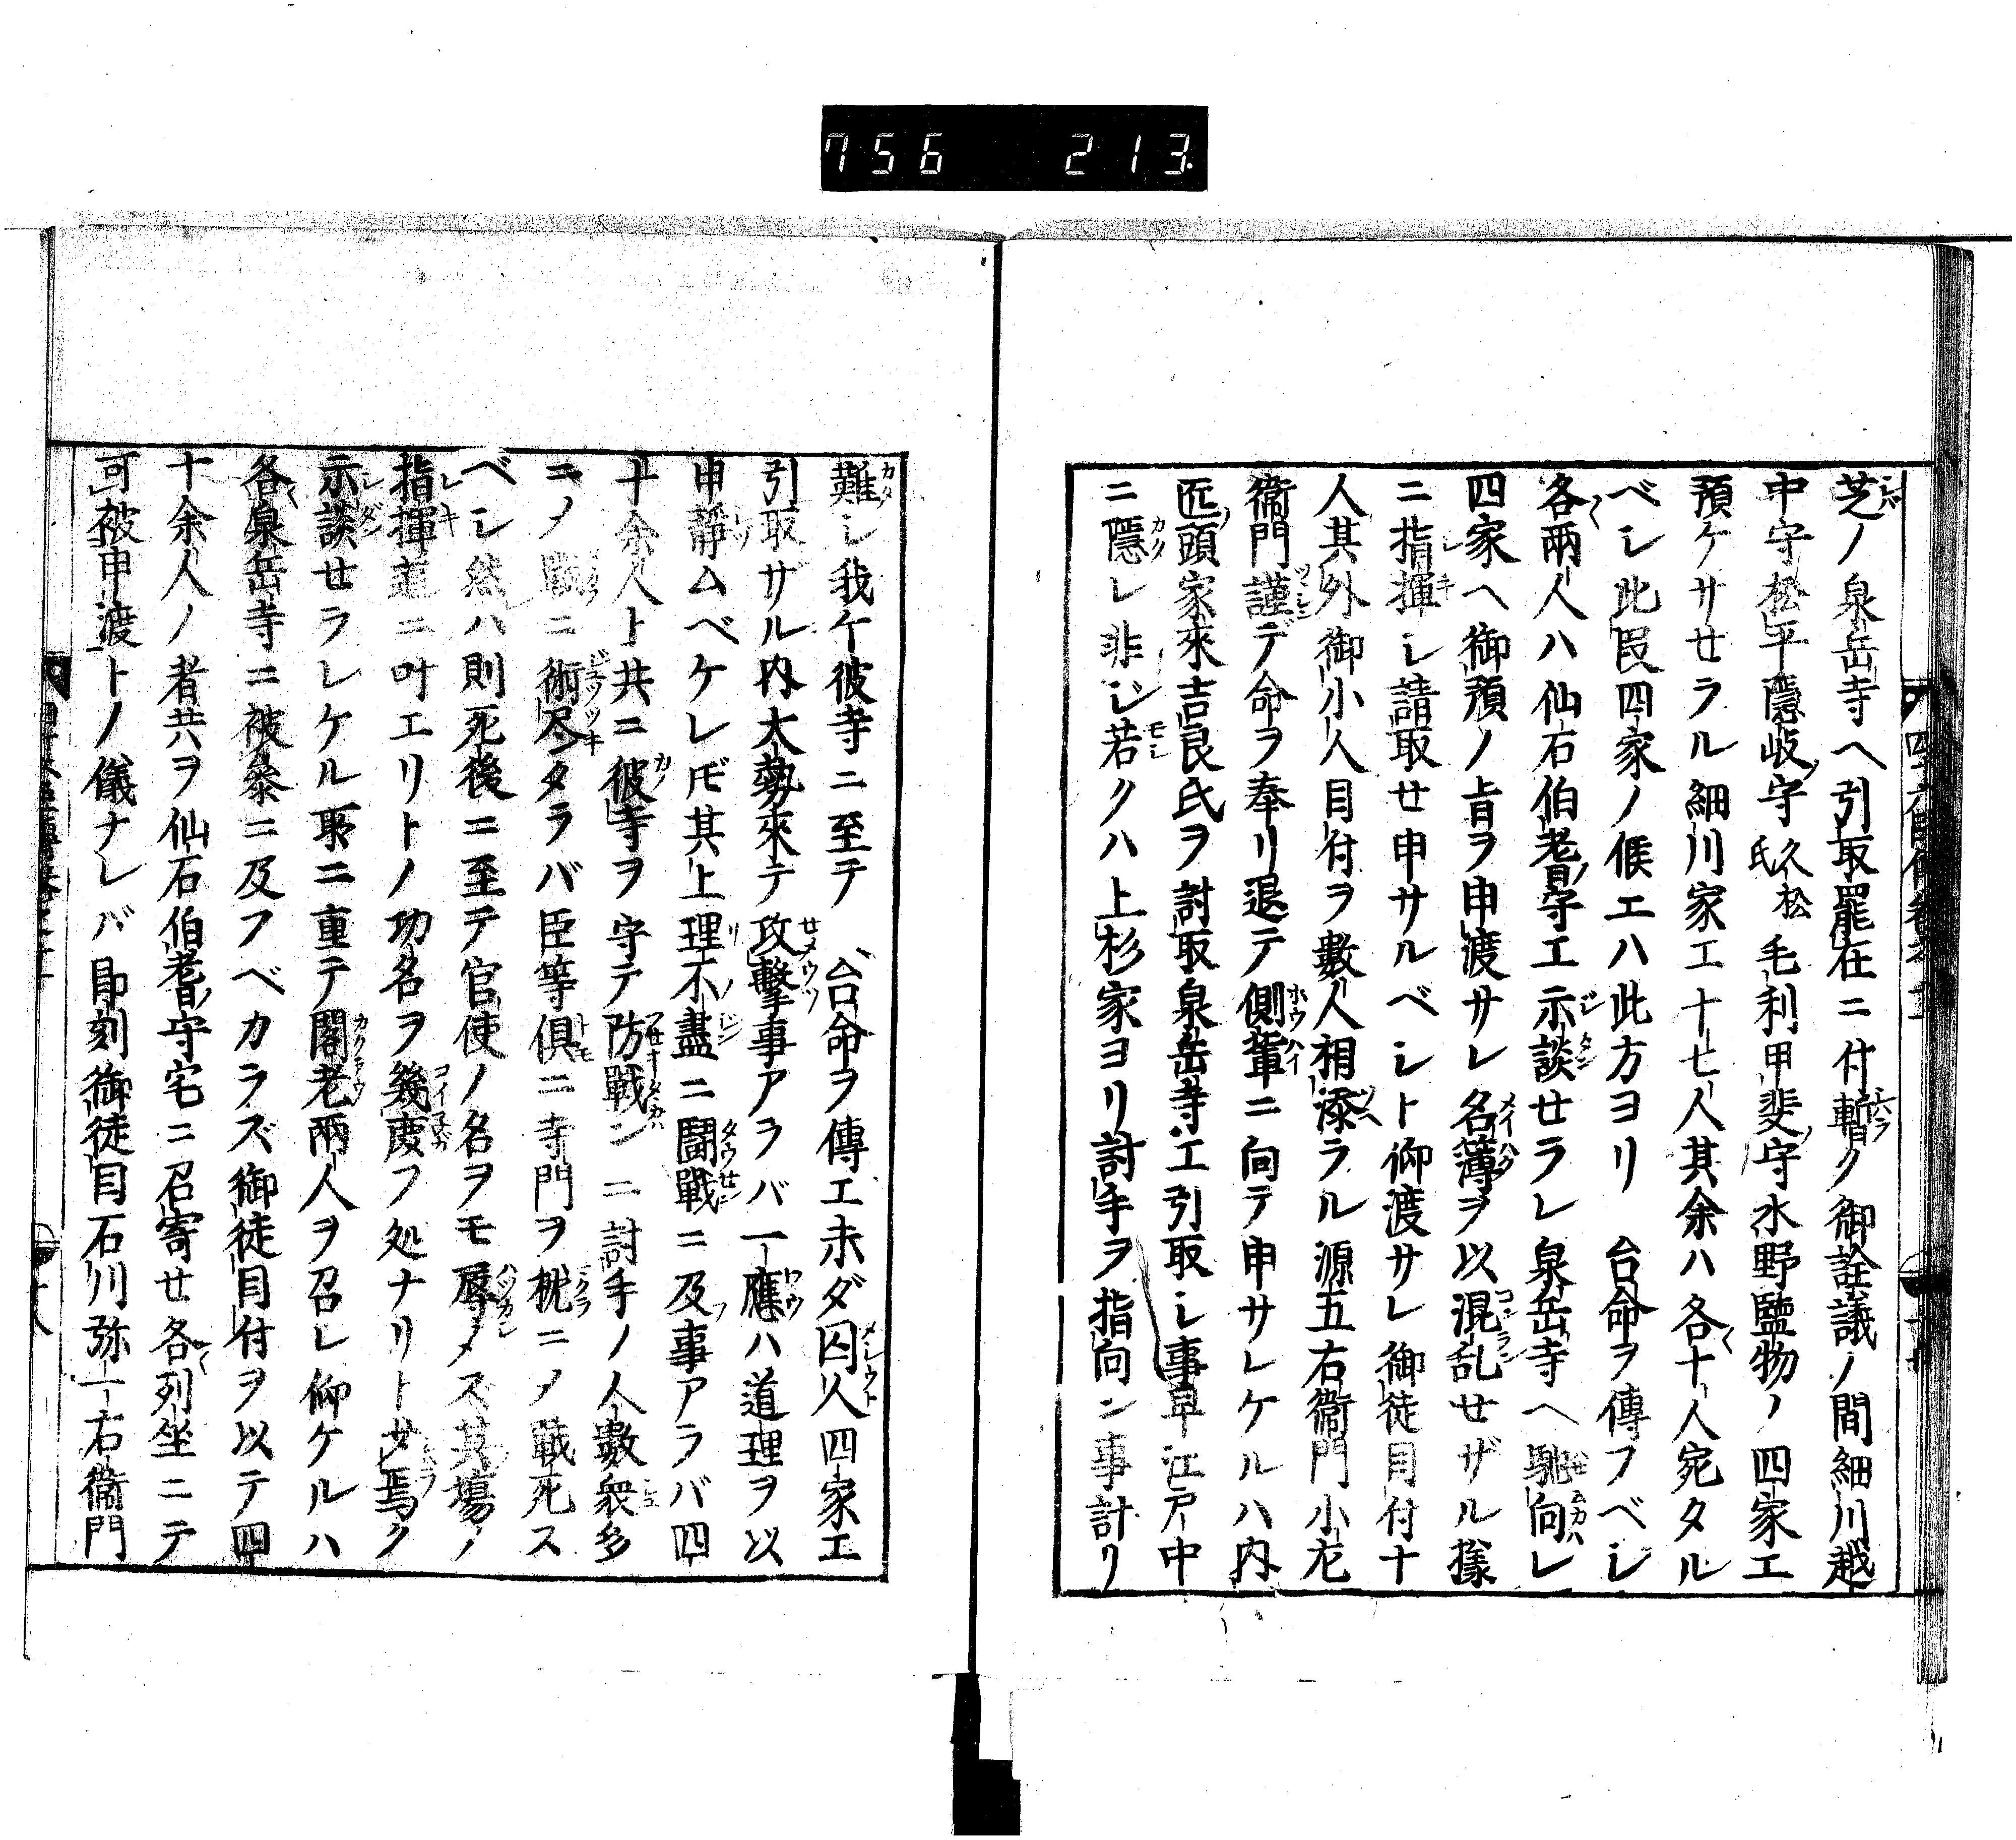 756 213.
芝ノ泉岳寺ヘ引取罷在ニ付暫ク御詮議ノ間細川越
中守松平隠岐守久松氏毛利甲斐守水野監物ノ四家エ
預ケサセラル細川家エ十七人其余ハ各十人宛タル
ベシ此段四家ノ候エハ此方ヨリ 台命ヲ傳フベシ
各兩人ハ仙石伯耆守エ示談セラレ泉岳寺ヘ馳向レ
四家ヘ御預ノ旨ヲ申渡サレ名簿ヲ以混乱セザル様
ニ指揮シ請取セ申サルベシト仰渡サレ御徒目付十
人其外御小人目付ヲ數人相添ラル源五右衞門小左
衞門謹デ命ヲ奉リ退テ側輩ニ向テ申サレケルハ内
匠頭家來吉良氏ヲ討取泉岳寺エ引取シ事早江戸中
ニ隠レ非ジ若クハ上杉家ヨリ討手ヲ指向ン事計リ
難シ我ケ彼寺ニ至テ 台命ヲ傳エ未ダ囚人四家エ
引取ザル内大勢來テ攻撃事アラバ一應ハ道理ヲ以
申靜ムベケレ𪜈其上理不盡ニ闘戰ニ及事アラバ四
十余人ト共ニ彼寺ヲ守テ防戰ン ニ討手ノ人數衆多
ニノ ニ術尽タラバ臣等倶ニ寺門ヲ枕ニノ戰死ス
ベシ然ハ則死後ニ至テ官使ノ名ヲモ辱メズ其場ノ
指揮道ニ叶エリトノ功名ヲ幾度フ処ナリトサ焉ク
示談セラレケル聚ニ重テ閣老兩人ヲ召レ仰ケルハ
各泉岳寺ニ被參ニ及フベカラズ御徒目付ヲ以テ四
十余人ノ者共ヲ仙石伯耆守宅ニ召寄セ各列坐ニテ
可被申渡トノ儀ナレバ即刻御徒目石川弥一右衞門